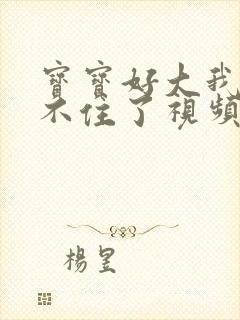 寶寶好大我
不住了視頻
楊昱